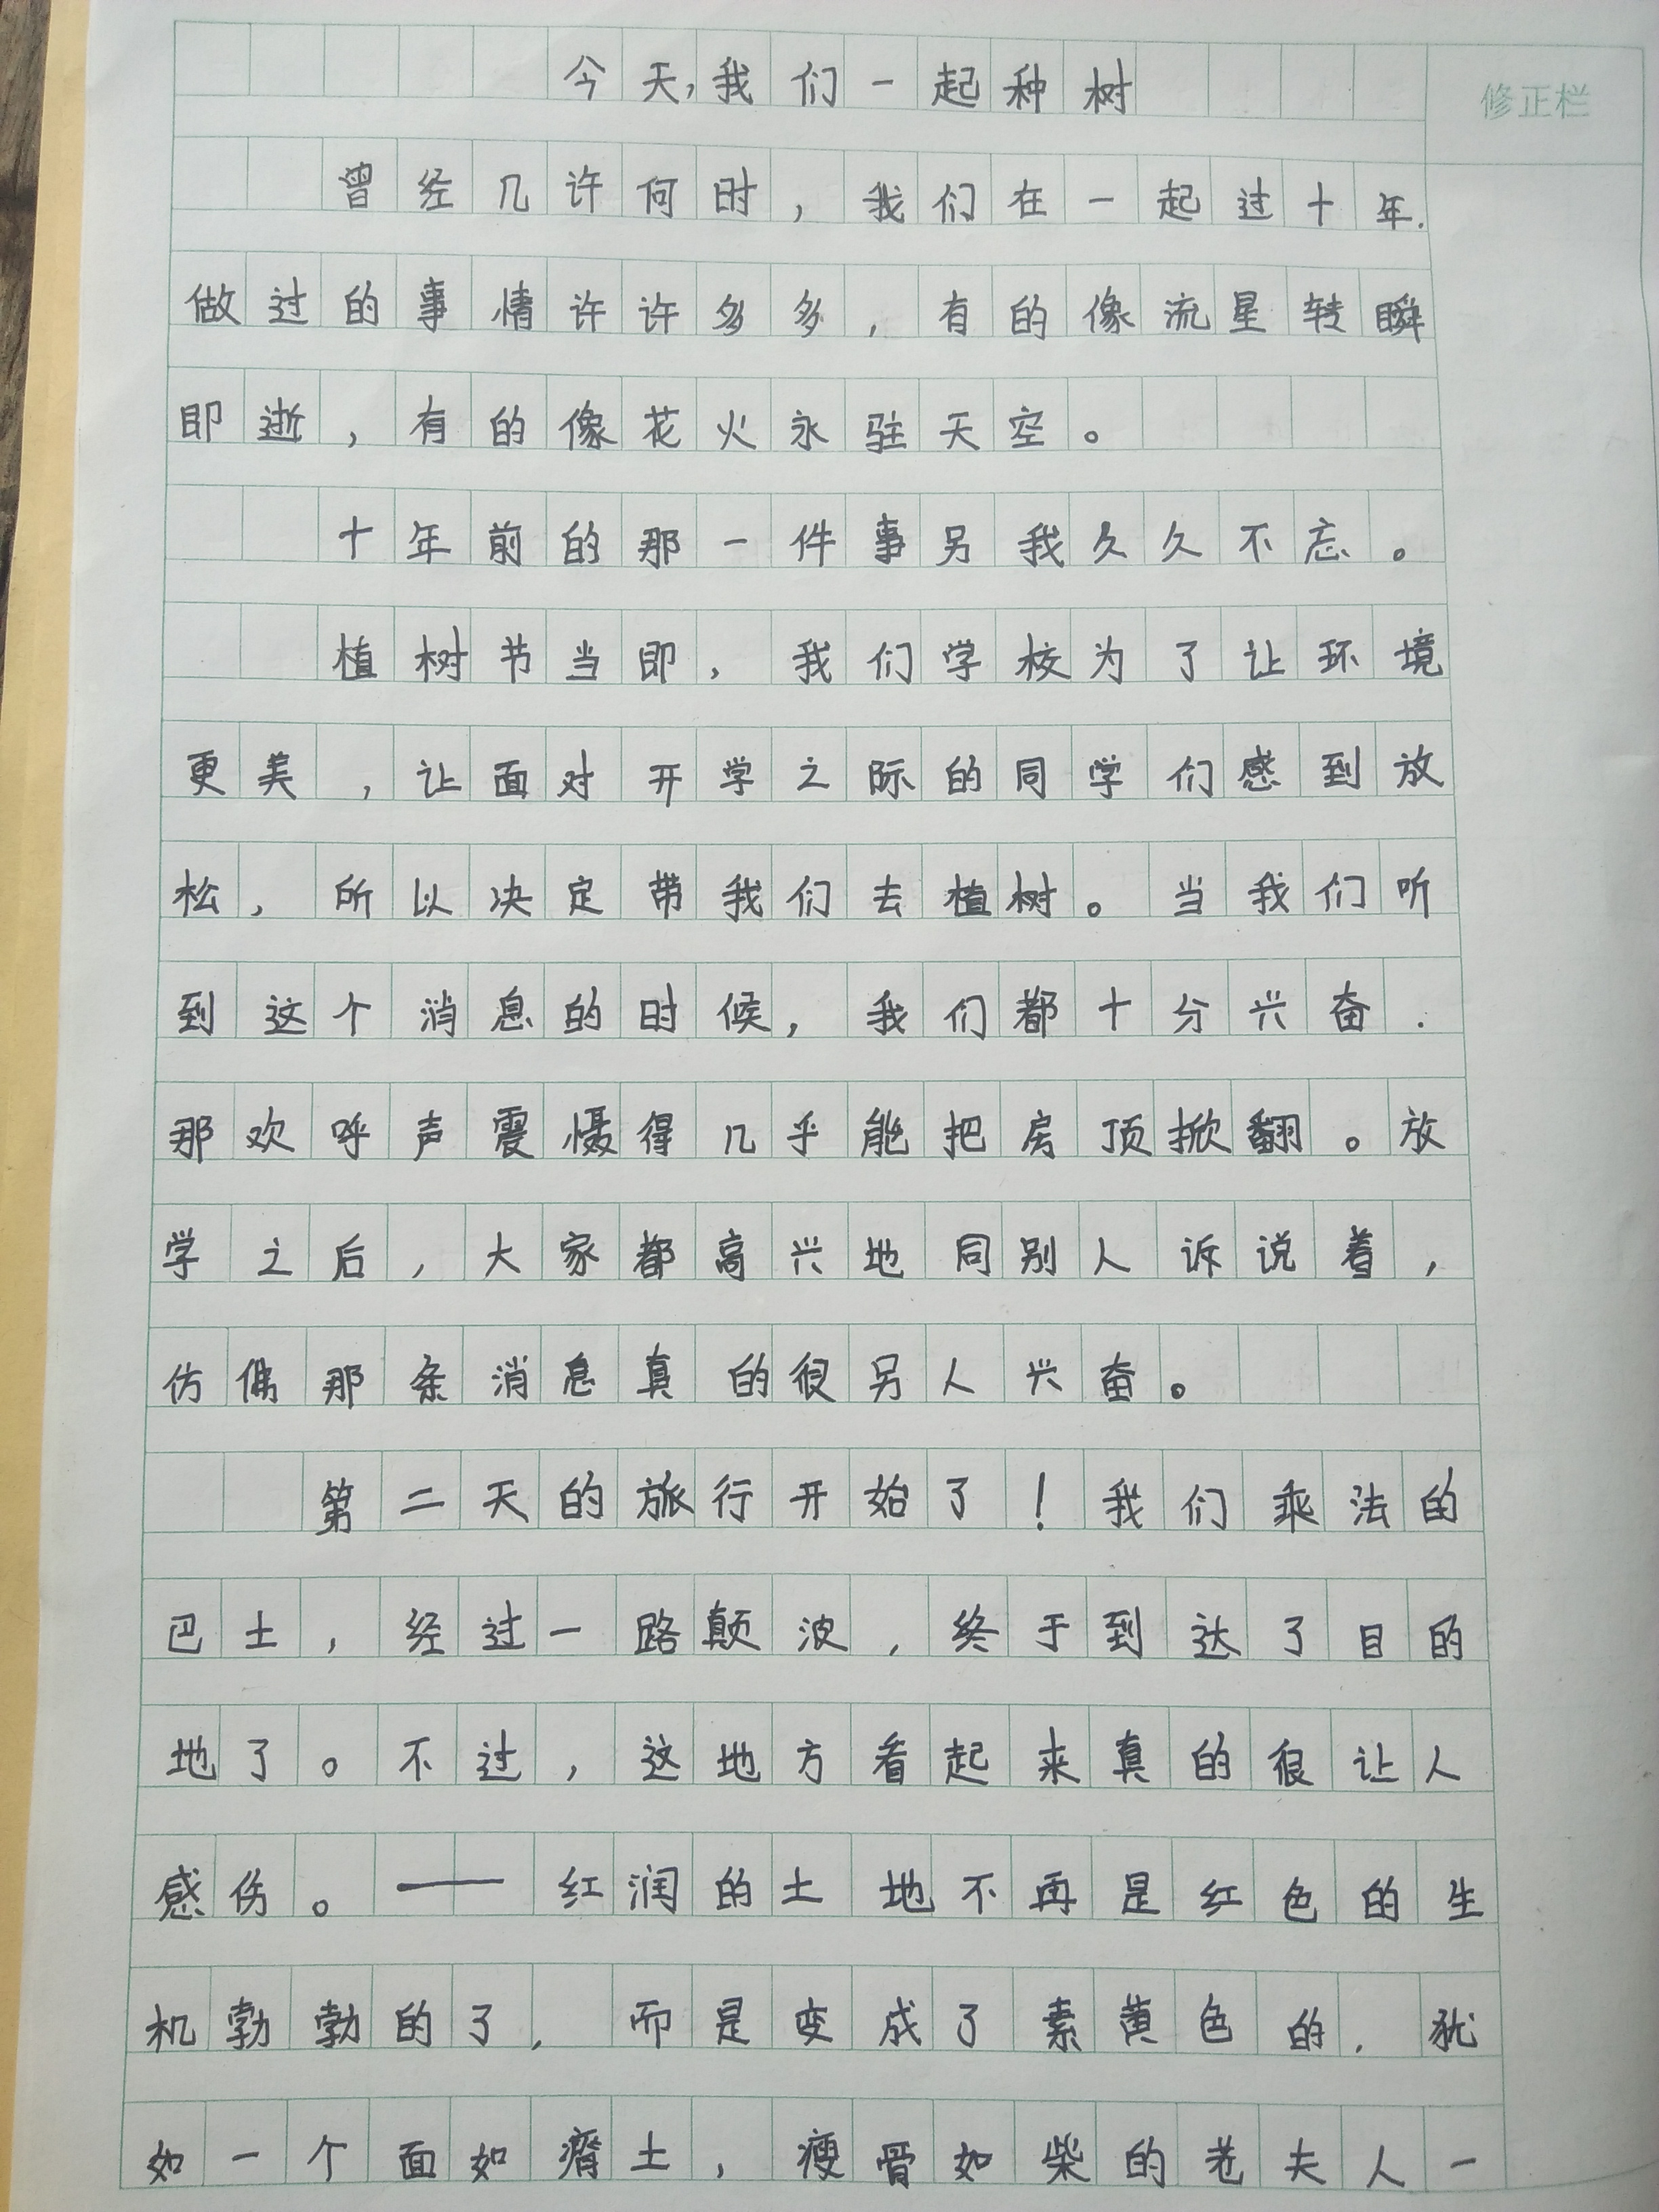 今天,我们一起种树
修正栏
曾经几许何时，我们在一起过十年.
做过的事情许许多多，有的像流星转瞬
即逝，有的像花火永驻天空。
十年前的那一件事另我久久不忘。
植树节当即，我们学校为了让环境
更美，让面对开学之际的同学们感到放
松，所以决定带我们去植树。当我们听
到这个消息的时候，我们都十分兴奋.
那欢呼声震慑得几乎能把房顶掀翻。放
学之后，大家都高兴地同别人诉说着，
仿佛那条消息真的很另人兴奋。
第二天的旅行开始了！我们乘法的
巴士，经过一路颠波，终于到达了目的
地了。不过，这地方看起来真的很让人
感伤。——红润的土地不再是红色的生
机勃勃的了，而是变成了素黄色的，犹
如一个面如瘠土，瘦骨如柴的老夫人一